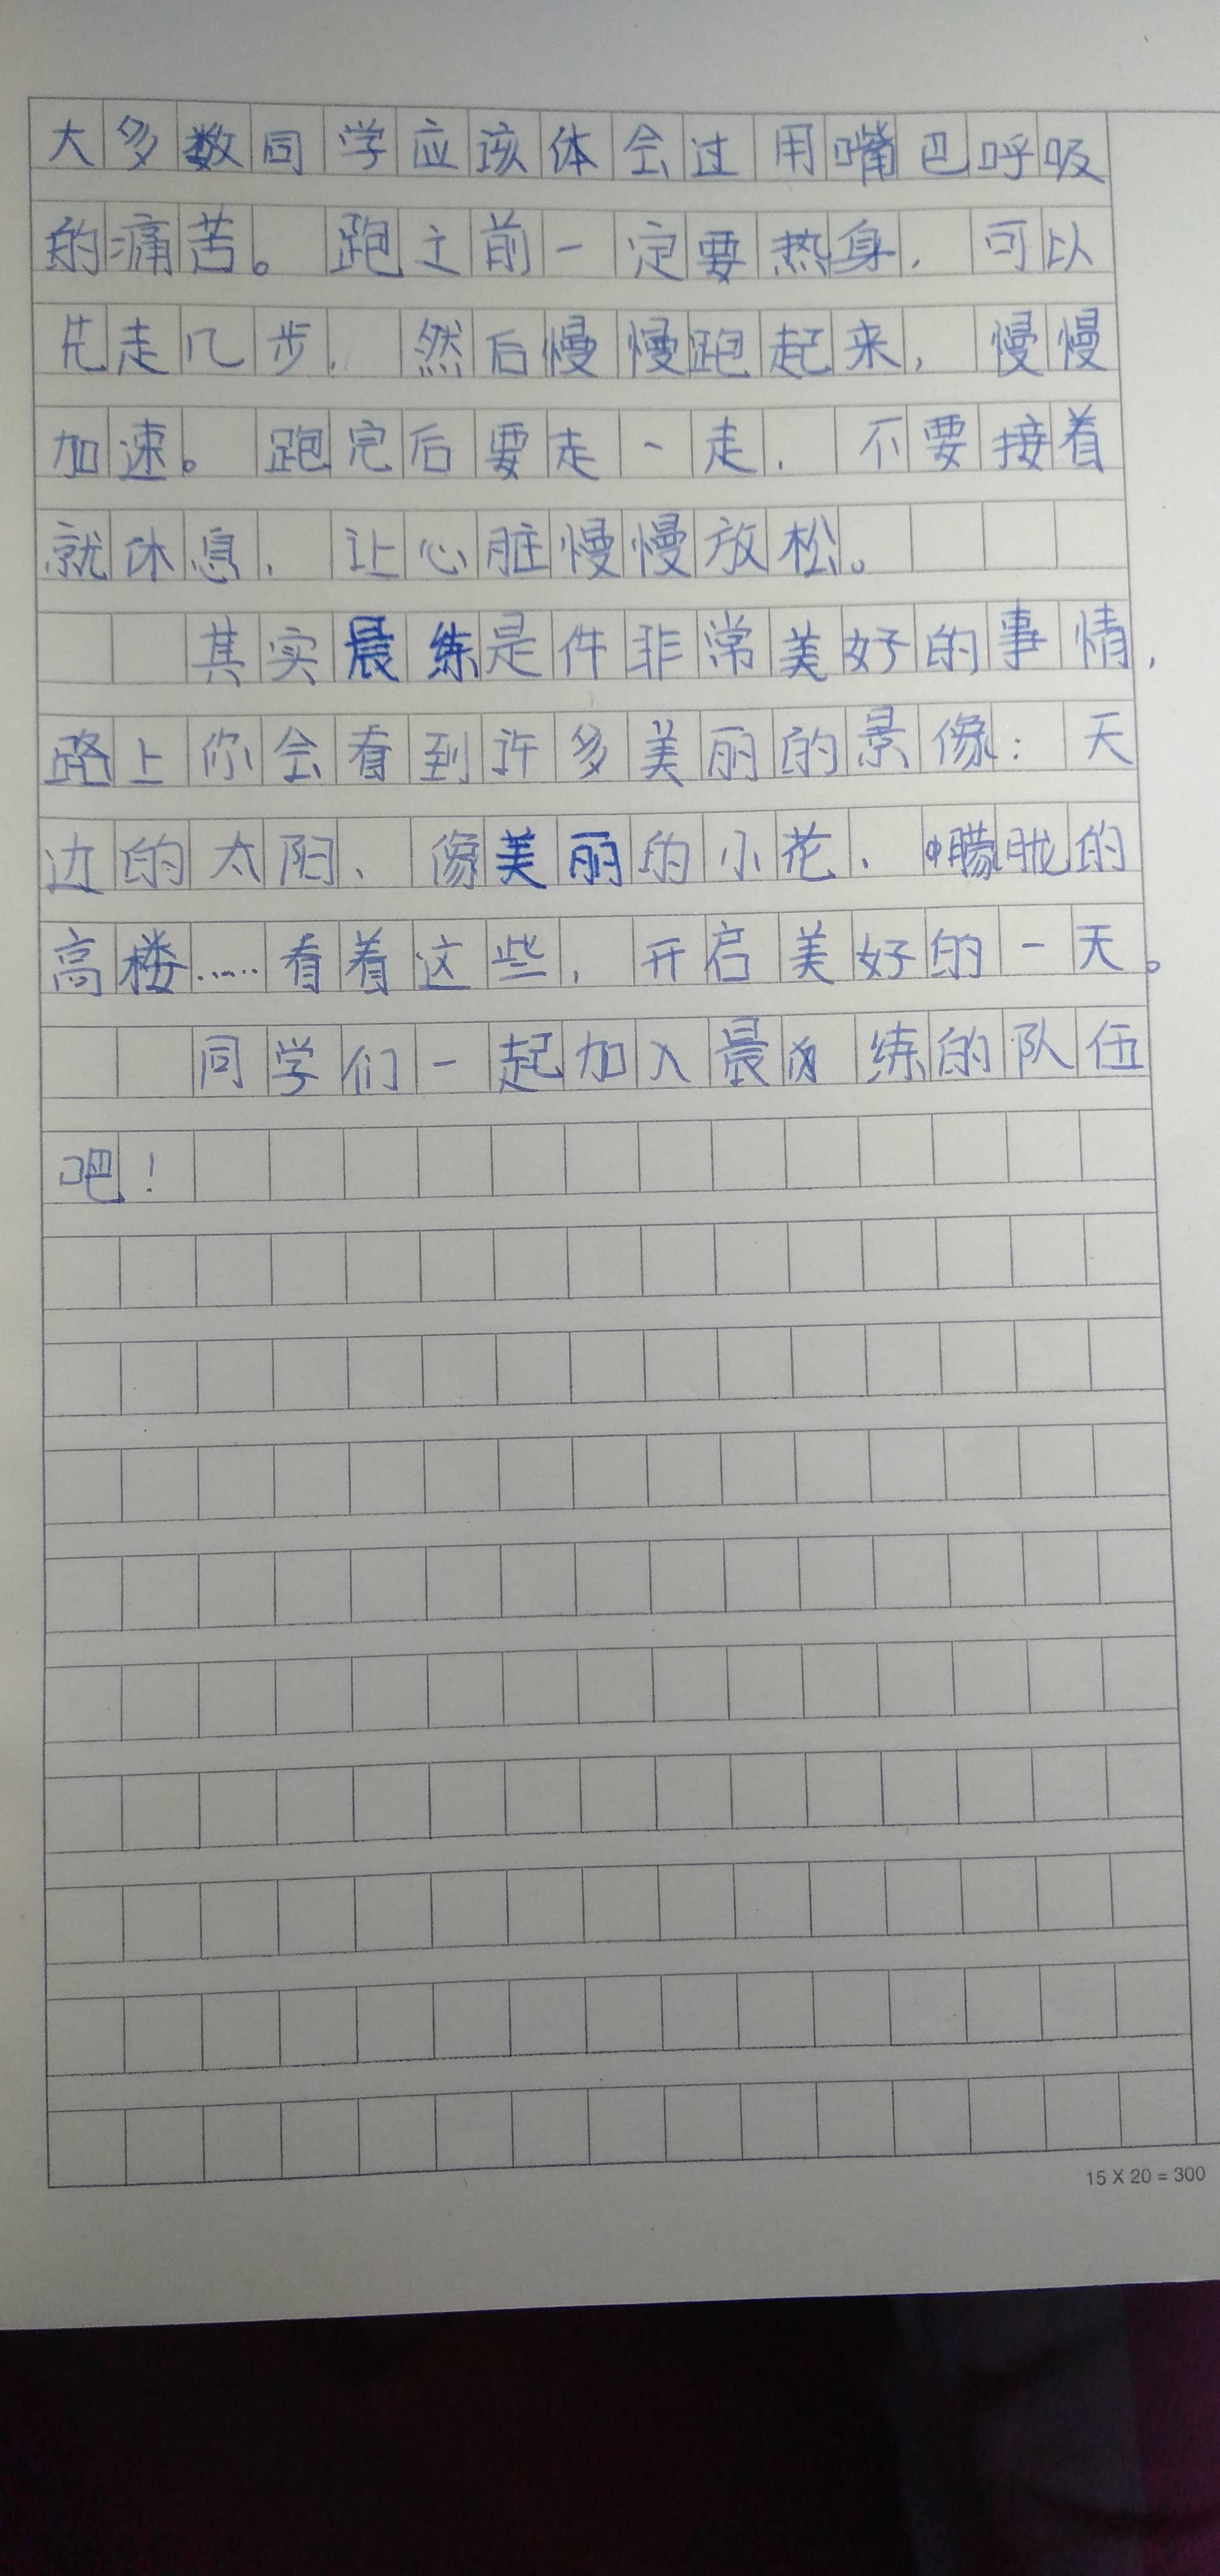 大多数同学应该体会过用嘴巴呼吸
的痛苦。跑之前一定要热身，可以
先走几步，然后慢慢跑起来，慢慢
加速。跑完后要走一走，不要接着
就休息，让心脏慢慢放松。
其实晨练是件非常美好的事情，
路上你会看到许多美丽的景像：天
边的太阳、像美丽的小花、朦胧的
高楼……看着这些，开启美好的一天。
同学们一起加入晨练的队伍
吧！
15 X 20 = 300